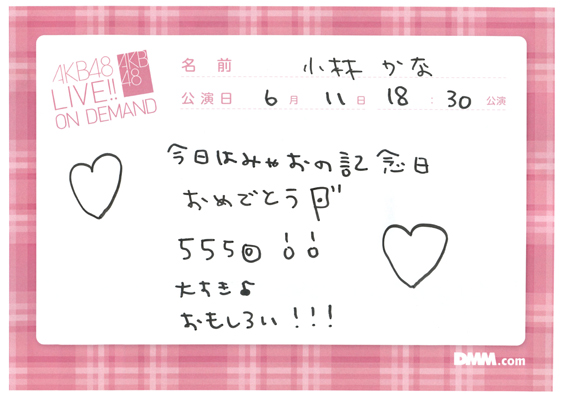 AKB48
LIVE!!
ON DEMAND
AKB
48
名前 小林 かな
公演日 6月 11日 18:30 公演
今日はみゃおの記念日
おめでとう
555回 !!
大すき♪
おもしろい!!!
DMM.com